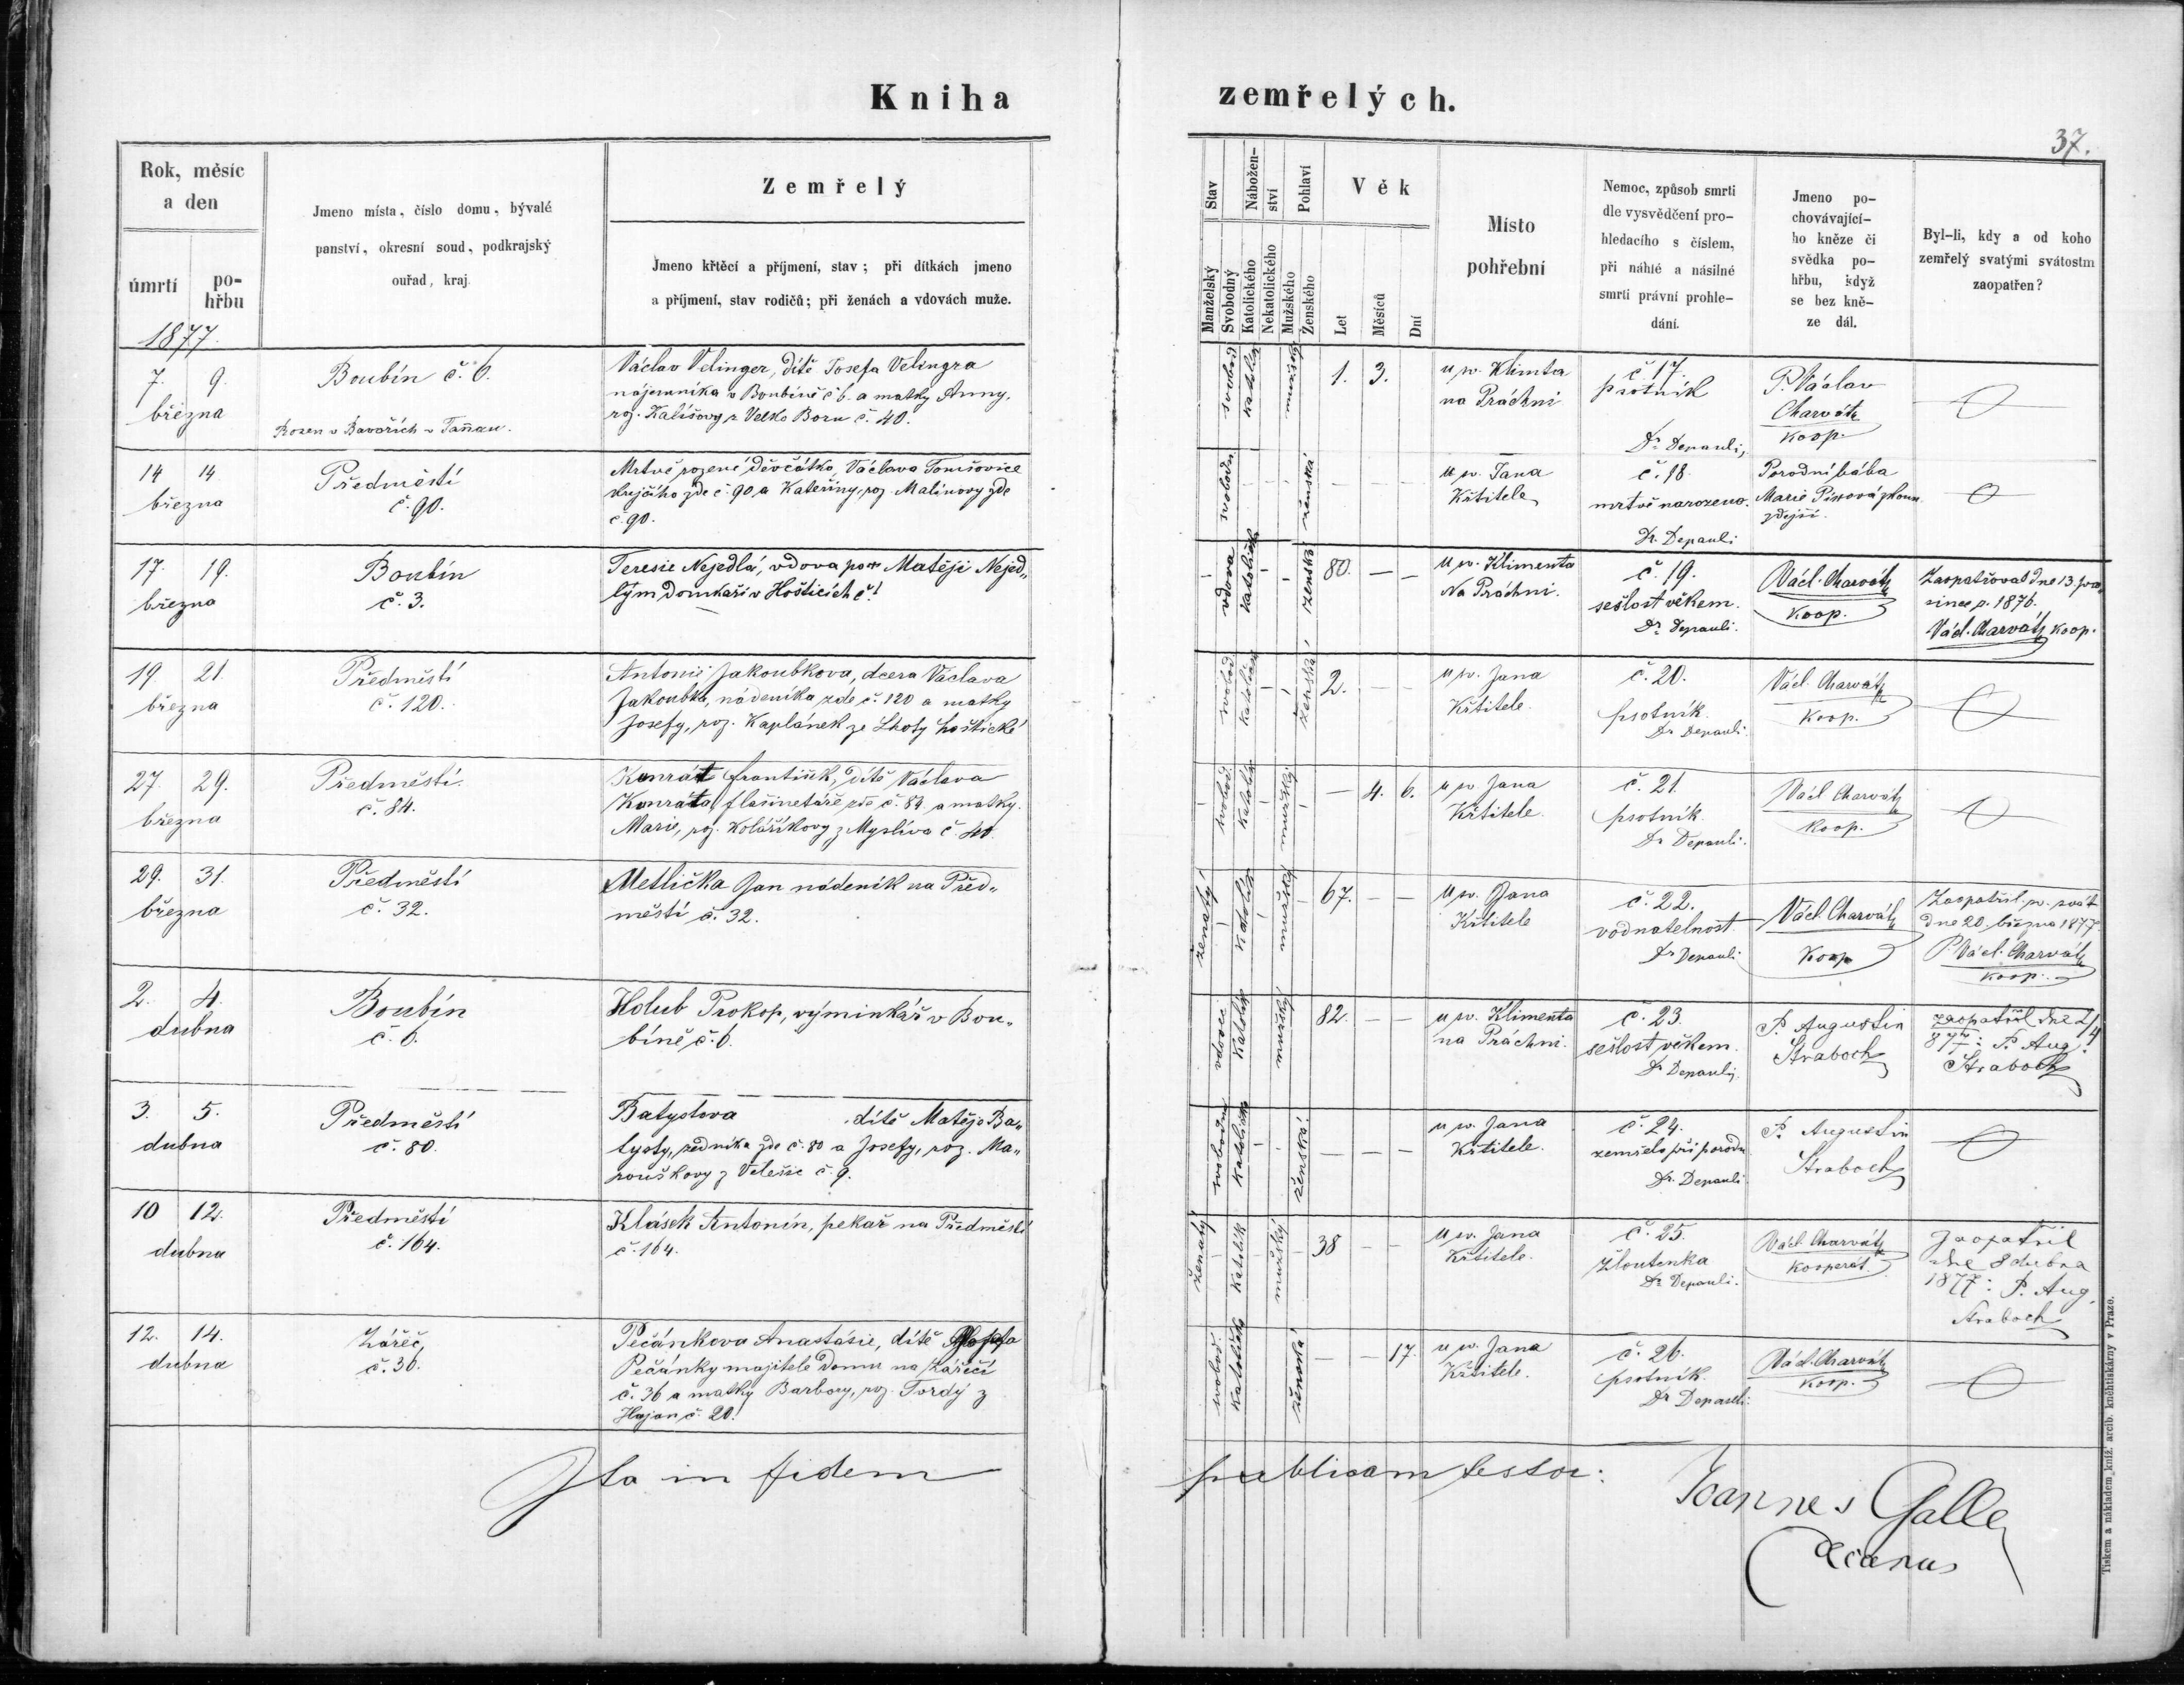 Kniha zemřelých.
37.
Rok, měsíc
a den
úmrtí
po-
hřbu
Jmeno místa, číslo domu, bývalé
panství, okresní soud, podkrajský
ouřad, kraj.
Zemřelý
Jmeno křtěcí a příjmení, stav; při dítkách jmeno
a příjmení, stav rodičů; při ženách a vdovách muže.
Stav
Manželský
Svobodný
Nábožen-
ství
Katolického
Nekatolického
Pohlaví
Mužského
Ženského
Věk
Let
Měsíců
Dní
Místo
pohřební
Nemoc, způsob smrti
dle vysvědčení pro-
hledacího s číslem,
při náhlé a násilné
smrti právní prohle-
dání.
Jmeno po-
chovávající-
ho kněze či
svědka po-
hřbu, když
se bez kně-
ze dál.
Byl-li, kdy a od koho
zemřelý svatými svátostm
zaopatřen?
1877.
7. 9.
března
Boubín č. 6.
Rosen v Bavořích v Tannau.
Václav Velinger, dítě Josefa Velingra
nájemníka v Boubíně č 6. a matky Anny,
roz. Kališovy z Velko Boru č. 40.
svobod
katolík
mužský
1. 3.
u sv. Klimta
na Práchni
č. 17.
psotník
Dr. Depauli,
P. Václav
Charvát
koop.
14 14
března
Předměstí
č. 90.
Mrtvě rozené děvčátko, Václava Tomšovice
krejčího zde č. 90 a Kateřiny, roz. Malinovy zde
č 90.
svobodn
ženská
u sv. Jana
Křtitele
č. 18.
mrtvě narozeno.
Dr. Depauli
Porodní bába
Marie zkouš.
zdejší.
17. 19.
března
Boubín
č. 3.
Teresie Nejedlá, vdova po Matěji Nejed„
lým domkaři v Hošticích č. 1
vdova
katolička
ženská
80.
u sv. Klimenta
Na Práchni.
č. 19.
sešlost věkem.
Dr. Depauli.
Václ. Charvát
koop.
Zaopatřoval dne 13 pro„
since r. 1876.
Václ. Charvát koop.
19 21.
března
Předměstí
č. 120.
Antonie Jakoubkova, dcera Václava
Jakoubka, nádeníka zde č. 120 a matky
Josefy, roz. Kaplánek ze Lhoty hoštické
svobod
katolička
ženská
2.
u sv. Jana
Křtitele.
č. 20.
psotník.
Dr. Depauli.
Václ. Charvát
koop.
27. 29.
března
Předměstí.
č. 84.
Konrát František, dítě Václava
Konráta, flašinetáře zde č. 84. a matky.
Marie, roz. Kolaříkovy z Myslíva č. 40.
svobod
katolík
mužský
4. 6.
u sv Jana
Křtitele.
č. 21.
psotník.
Dr. Depauli.
Václ Charvát
koop.
29. 31.
března
Předměstí
č. 32.
Metlička Jan nádeník na Před„
městí č. 32.
ženatý
katolík
mužský
67.
u sv. Jana
Křtitele
č. 22.
vodnatelnost
Dr Depauli
Václ. Charvát
koop
Zaopatřil. sv. svát
dne 20. března 1877
P. Václ. Charvát
koop.
2. 4.
dubna
Boubín
č. 6.
Holub Prokop, výminkář v Bou„
bíně č. 6.
vdovec
katolík
mužský
82.
u sv. Klimenta
na Práchni.
č. 23.
sešlost věkem.
Dr Depauli,
P. Augustin
Straboch
zaopatřil dne 2/4
877: P. Aug.
Straboch
3. 5.
dubna
Předměstí
č. 80.
Batystova dítě Matěje Ba„
tysty, zedníka zde č. 80 a Josefy, roz. Ma„
rouškovy z Velešic č. 9.
svobodné
katolička
ženská
u sv. Jana
Křtitele.
č. 24.
zemřelo při porodu
Dr. Depauli
P. Augustin
Straboch
10 12.
dubna
Předměstí
č. 164.
Klásek Antonín, pekař na Předměstí
č. 164.
ženatý
katolík
mužský
38
u sv. Jana
Křtitele.
č. 25.
žloutenka
Dr. Depauli.
Václ. Charvát
kooperát.
Zaopatřil
dne 8 dubna
1877: P. Aug.
Straboch
12. 14.
dubna
Zářeč,
č. 36.
Pečánkova Anastásie, dítě Josefa
Pečánky majitele domu na Zářečí
č. 36 a matky Barbory, roz. Tordy z
Hajan č. 20.
svobod.
katolička
ženská
17.
u sv. Jana
Křtitele.
č. 26.
psotník.
Dr Depauli.
Václ. Charvát
koop.
Ita in fidem publicam testor:
Joannes Galle
Decanus
Tiskem a nákladem kníž. arcib. kněhtiskárny v Praze.